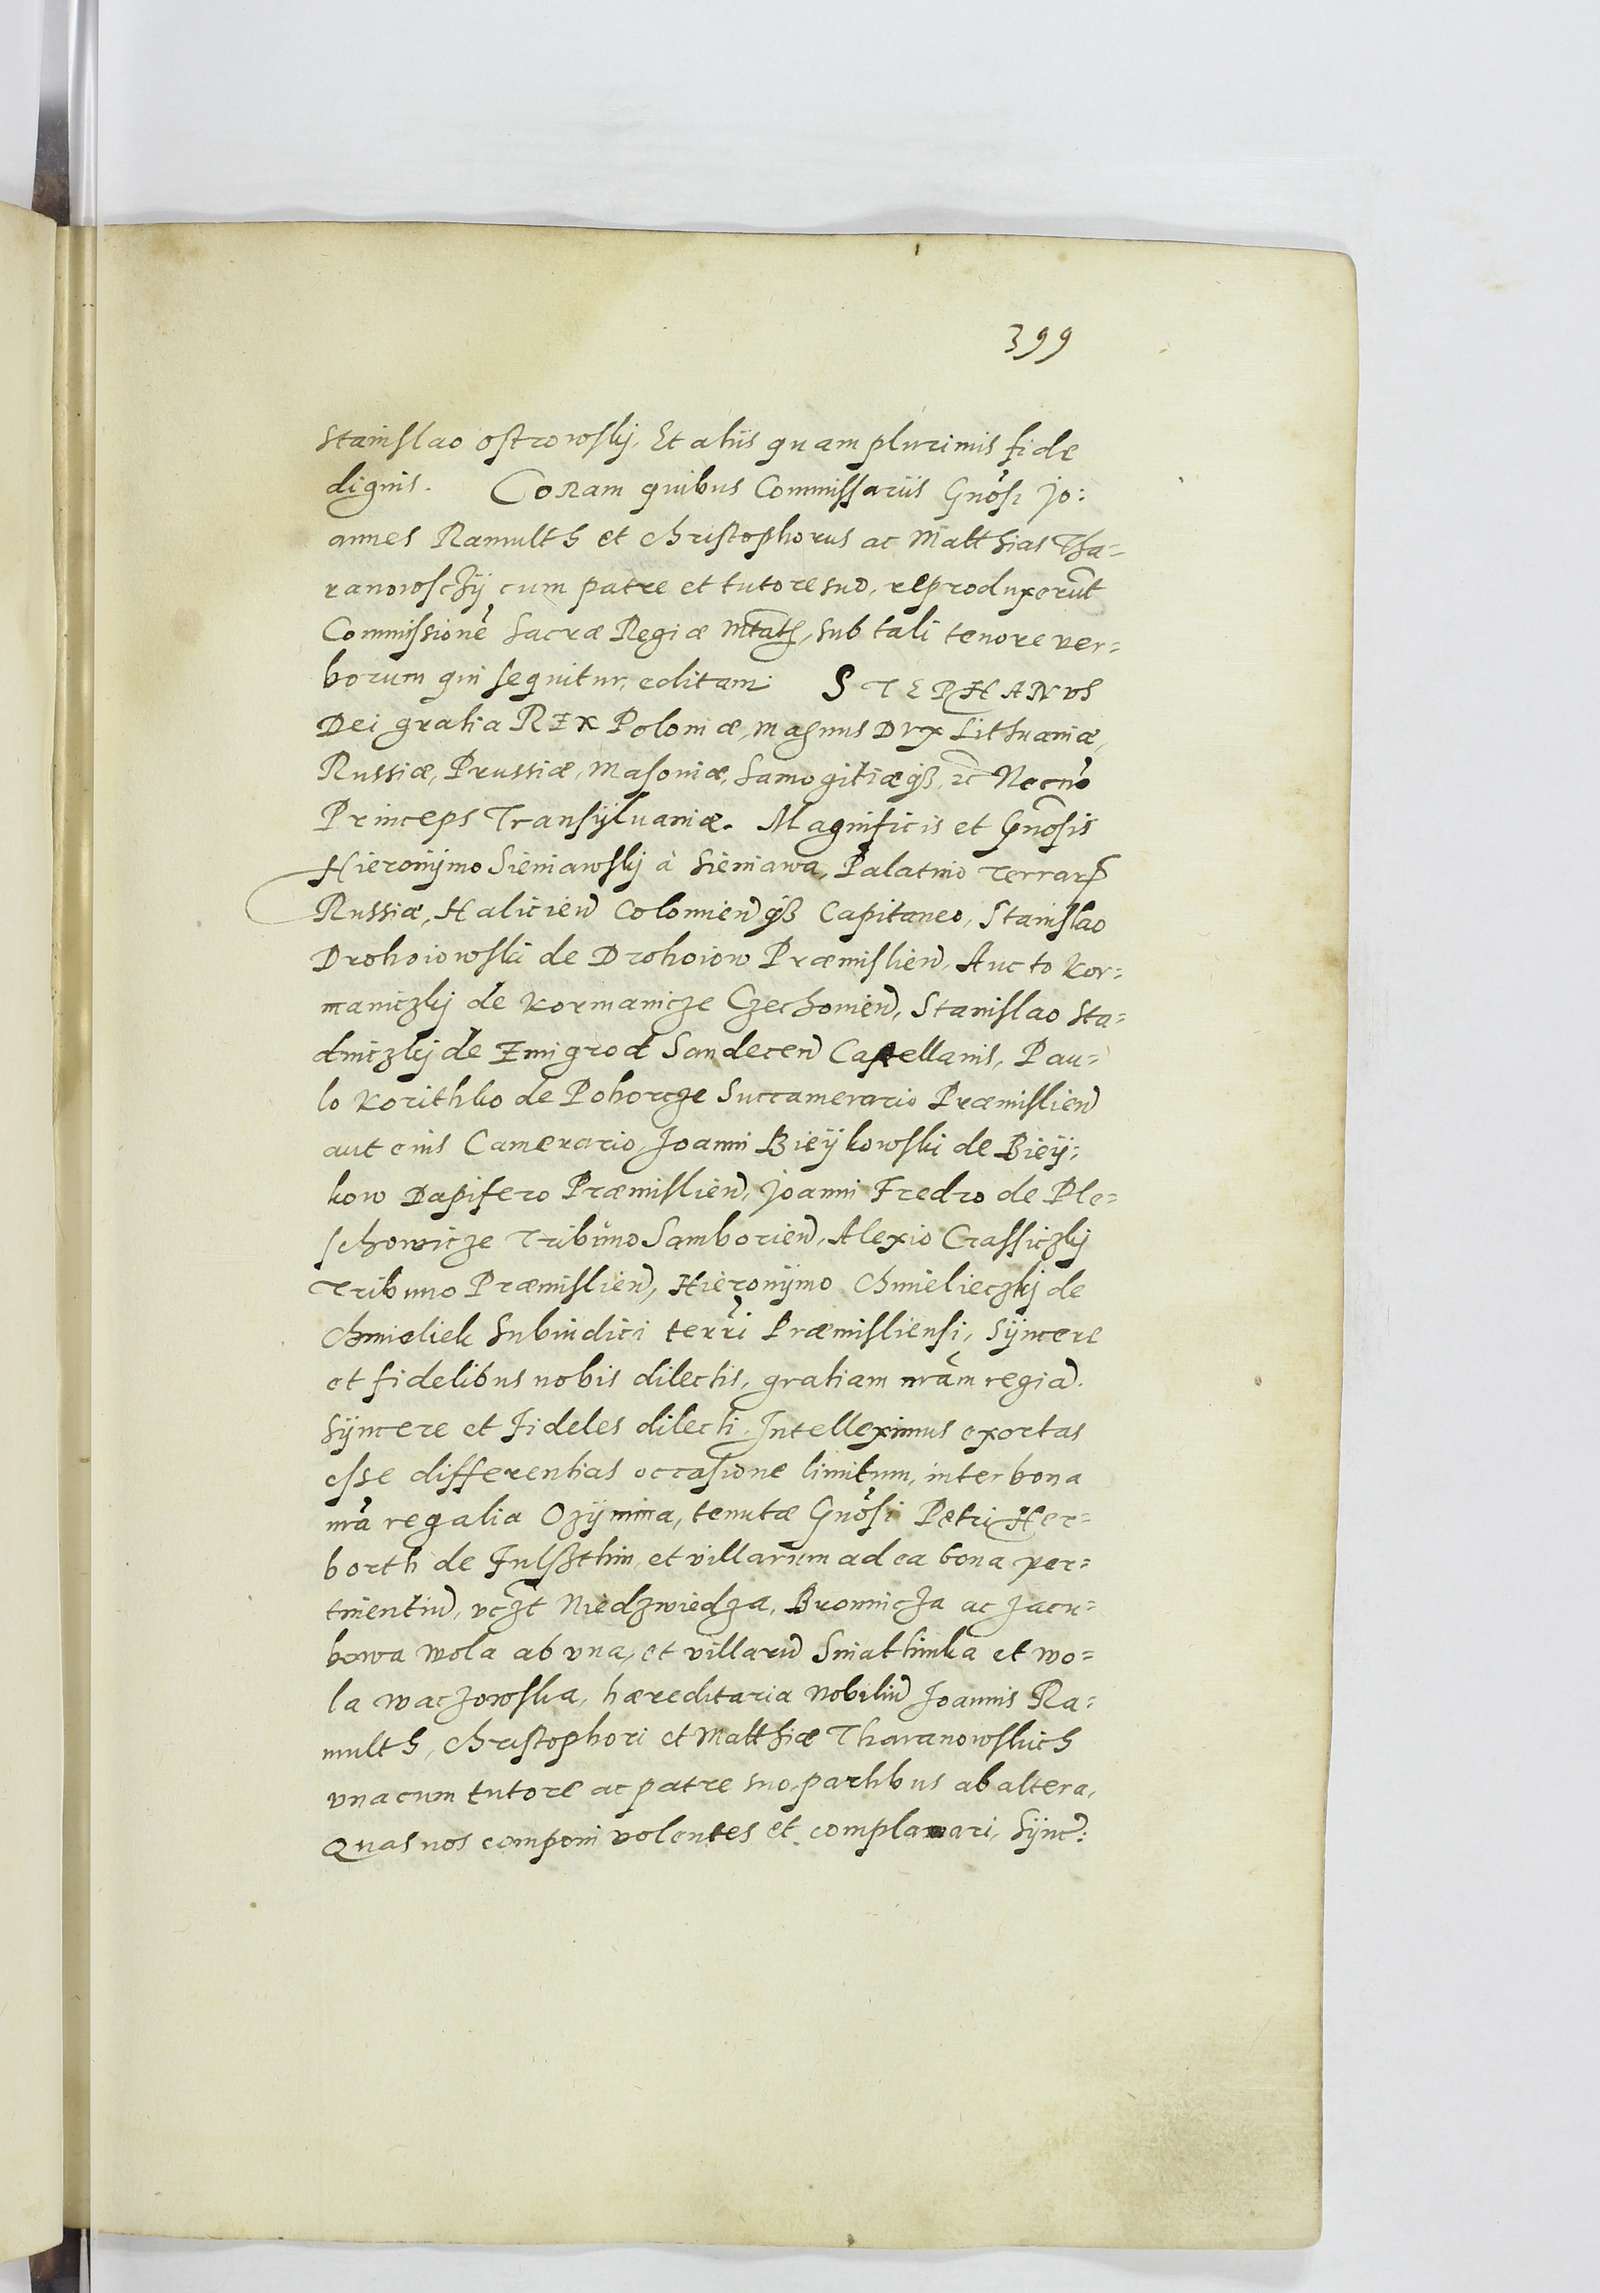 399
Stanislao ostrowskj. Et aliis quam plurimis fide
dignis. Coram quibus Commissariis Gnosi Jo:
annes Ramulth et Christophorus ac Matthias Tha=
ranowsckÿ cum patre et tutore suo, reproduxerūt
Commissionē Sacræ Regiæ Mtatis, sub tali tenore ver=
borum qui sequitur, editam: STEPHANVS
Dei gratia REX Poloniæ, Magnus Dvx Lithuaniæ,
Russiæ, Prussiæ, Masoviæ, Samogitiæqz, zc Necnō
Princeps Transÿluaniæ. Magnificis et Gnosis
Hieronÿmo Sieniawskj à Sieniawa, Palatino Terrarū
Russiæ, Halicien Colomienqz Capitaneo, Stanislao
Drohoiowski de Drohoiow Præmislien, Aucto Kor=
maniczkj de Kormanicze Czechonien, Stanislao Sta=
dniczkj de Zmigrod Sandecen Castellanis, Pau=
lo Korithko de Pohorcze Succamerario Præmislien
aut eius Camerario, Joanni Bieÿkowski de Bieÿ=
kow Dapifero Præmislien, Joanni Fredro de Ple=
schowicze Tribuno Samborien, Alexio Crassiczkj
Tribuno Præmislien, Hieronÿmo Chmielieczkj de
Chmieliek Subiudici terrī Præmisliensi, Sÿncere
et fidelibus nobis dilectis, gratiam nrām regiā.
Sÿncere et Fideles dilecti. Intelleximus exortas
esse differentias occasione limitum, inter bona
nrā regalia Ozÿmina, tenutæ Gnosi Petri Her=
borth de Fulsthin, et villarum ad ea bona per=
tinentiū, vczt Niedzwiedza, Bronnicza ac Jacu=
bowa Wola ab vna, et villarū Sniathinka et Wo=
la Waczowska, hæreditaria Nobiliū Joannis Ra=
multh, Christophori et Matthiæ Tharanowskich
vna cum tutore ac patre suo, partibus ab altera,
Quas nos componi volentes et complanari, Sÿnc: